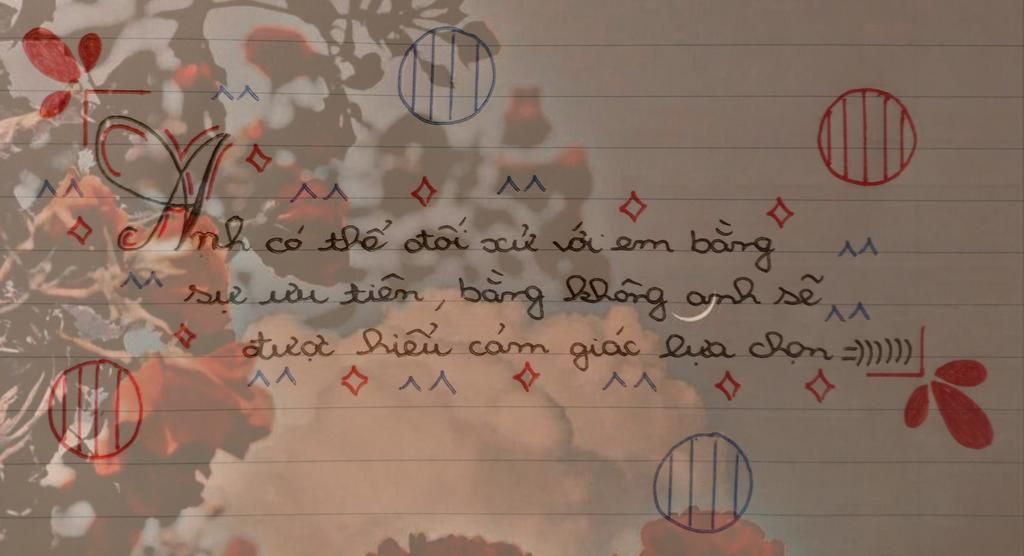 Anh có thể đối xử với em bằng
sự ưu tiên, bằng không anh sẽ
được hiểu cảm giác lựa chọn =))))))